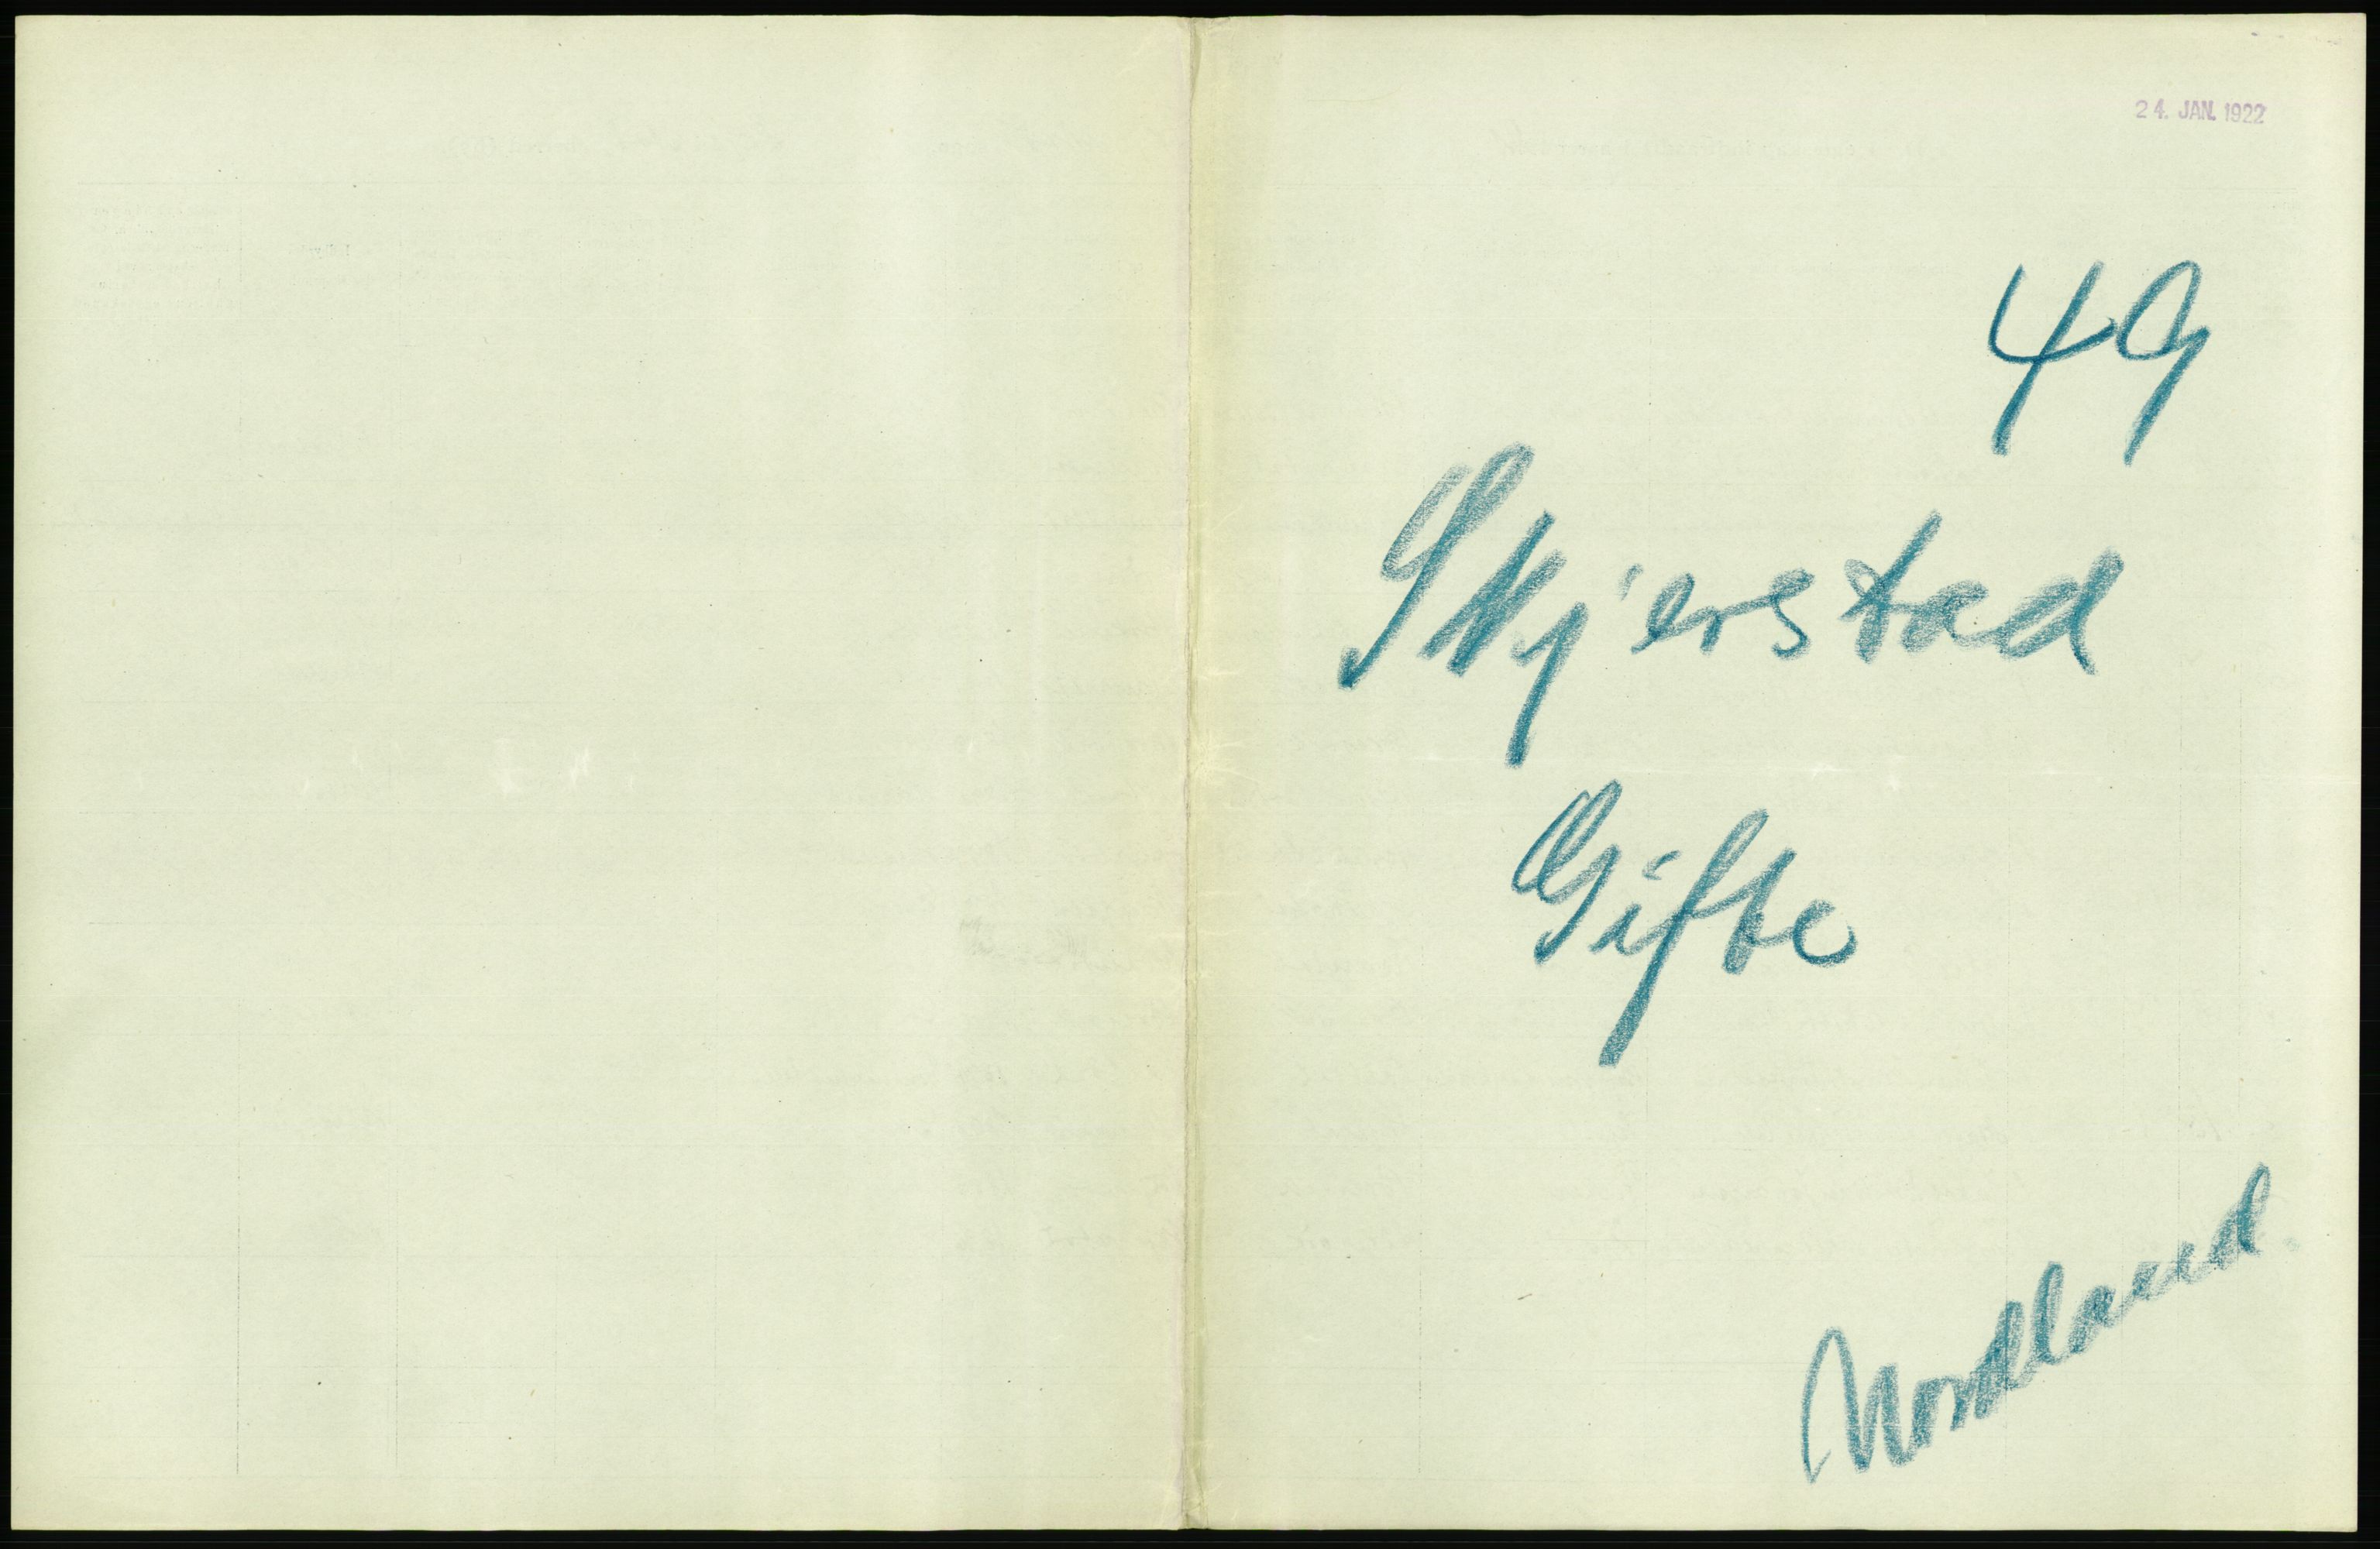 24. JAN. 1922
49
Skjerstad
Gifte
Nordland.